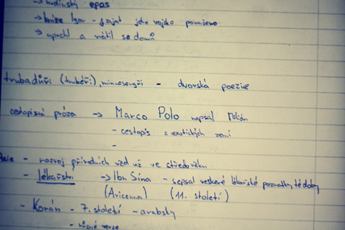 → hrdinský epos
→ kníže Igor - zajat jako vojsko poraženo
→ uprchl a vrátil se domů
trubadúři (trubéři), minnesengři - dvorská poezie
cestopisná próza → Marco Polo napsal Milión
- cestopis z exotických zemí
-
- rozvoj přírodních věd už ve středověku
- lékařství → Ibn Sina - sepsal veškeré lékařské poznatky té doby
(Avicenna) (11. století)
- Korán - 7. století - arabsky